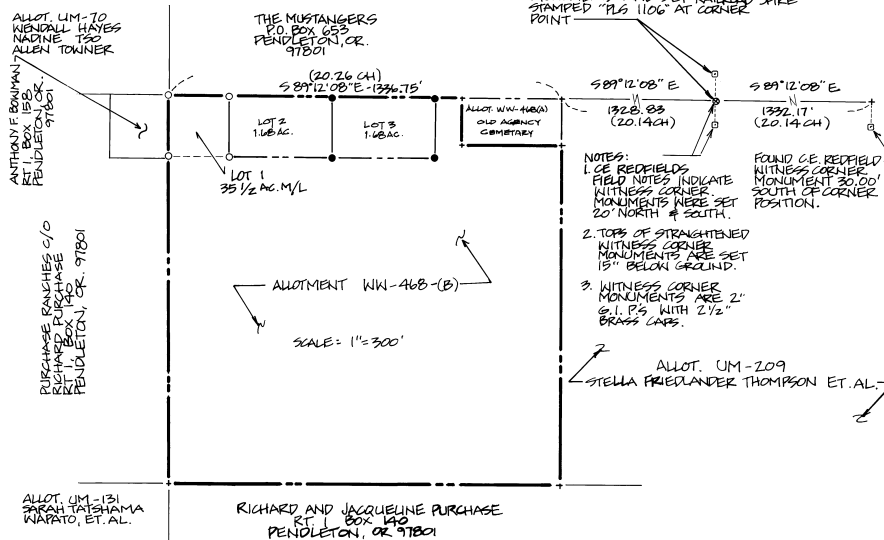 ALLOT. UM-70
WENDALL HAYES
NADINE TSO
ALLEN TOWNER
THE MUSTANGERS
P.O. BOX 653
PENDLETON, OR.
97801
STAMPED "PLS 1106" AT CORNER
POINT
ANTHONY F. BOWMAN
RT 1, BOX 158
PENDLETON, OR.
97801
(20.26 CH)
S 89°12'08" E - 1336.75'
S 89°12'08" E
1328.83
(20.14 CH)
S 89°12'08" E
1332.17'
(20.14 CH)
LOT 2
1.68 AC.
LOT 3
1.68 AC.
ALLOT. WW-468(A)
OLD AGENCY
CEMETARY
LOT 1
35 1/2 AC. M/L
NOTES:
1. CE REDFIELDS
FIELD NOTES INDICATE
WITNESS CORNER
MONUMENTS WERE SET
20' NORTH & SOUTH.
2. TOPS OF STRAIGHTENED
WITNESS CORNER
MONUMENTS ARE SET
15" BELOW GROUND.
3. WITNESS CORNER
MONUMENTS ARE 2"
G.I. P.'S WITH 2 1/2"
BRASS CAPS.
FOUND C.E. REDFIELD
WITNESS CORNER
MONUMENT 30.00'
SOUTH OF CORNER
POSITION.
PURCHASE RANCHES C/O
RICHARD PURCHASE
RT 1, BOX 140
PENDLETON, OR. 97801
ALLOTMENT WW-468-(B)
SCALE = 1"=300'
ALLOT. UM-209
STELLA FRIEDLANDER THOMPSON ET. AL.
ALLOT. UM-131
SARAH TATSHAMA
WAPATO, ET. AL.
RICHARD AND JACQUELINE PURCHASE
RT. 1 BOX 140
PENDLETON, OR 97801